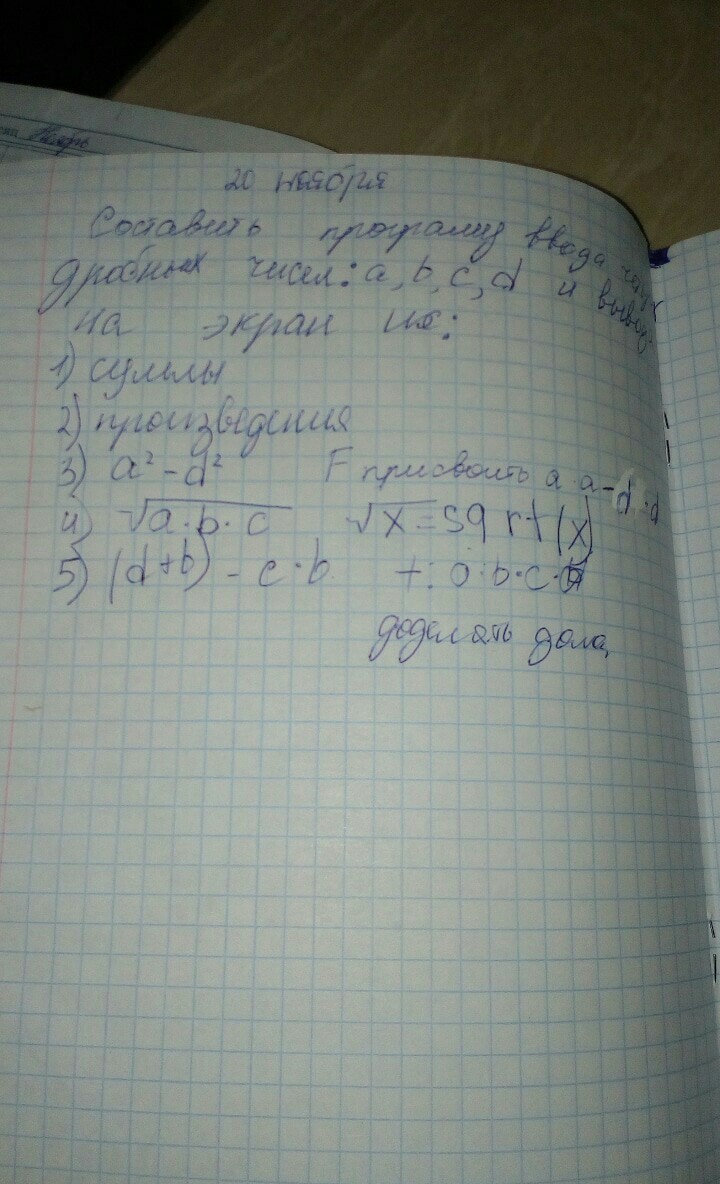 Ноябрь
20 ноября
Составить програму ввода
дробных чисел: a, b, c, d и вывод
на экран их:
1) суммы
2) произведения
3) a² - d² F присвоить a·a-d·d
4) √a·b·c √x = sqrt(x)
5) (d+b) - c·b +: a·b·c·
доделать дома,